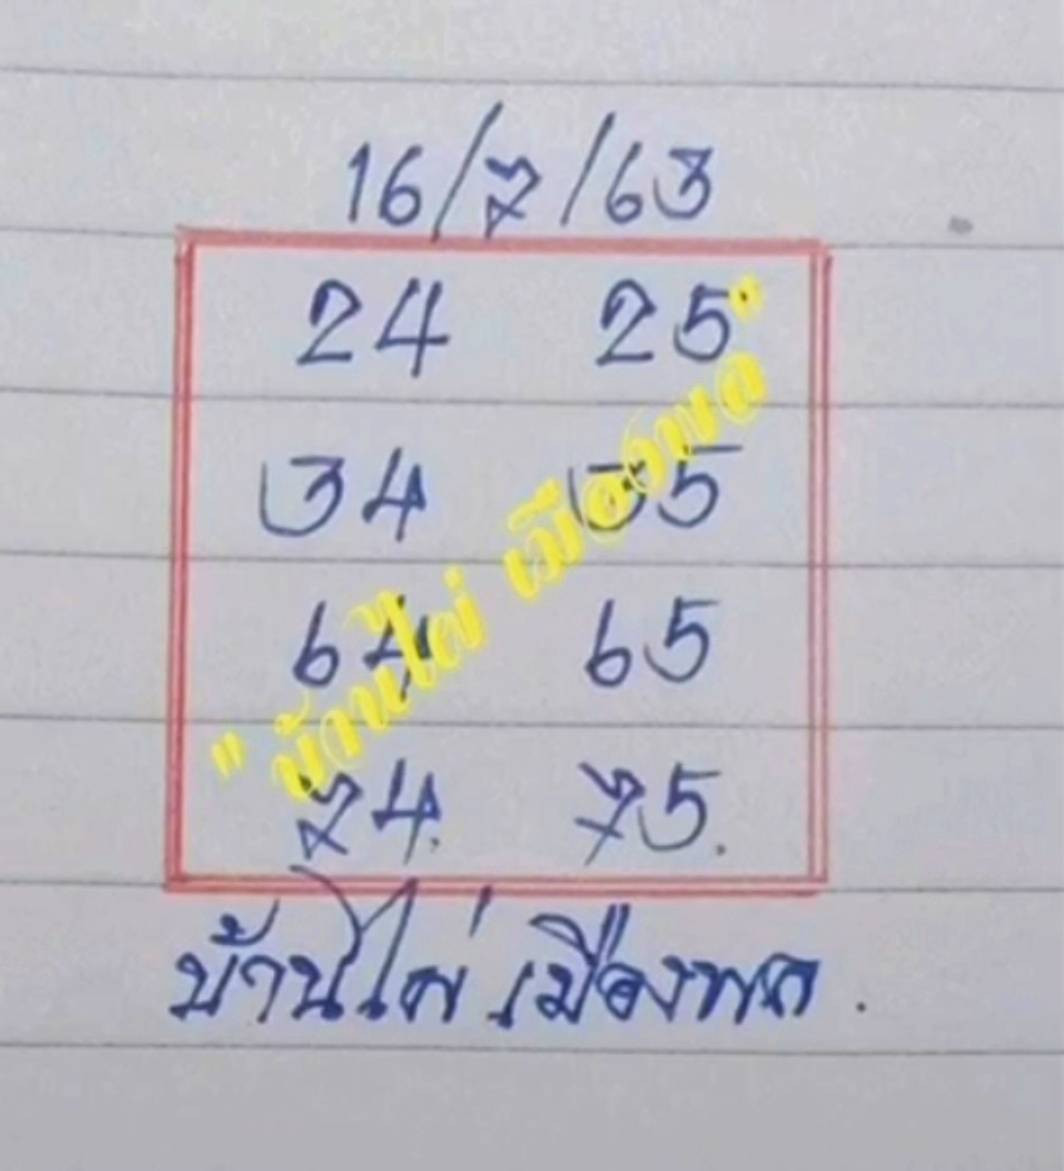 16/7/63
24 25
34 35
64 65
74. 75.
"บ้านไผ่ เมืองพล"
บ้านไผ่ เมืองพล.